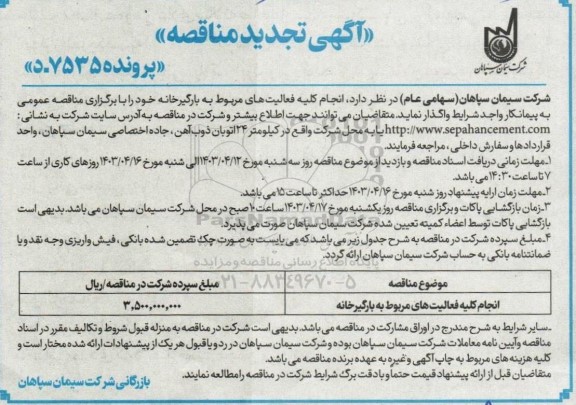 «آگهی تجدید مناقصه»
«پرونده ۷۵۳۵-د»
شرکت سیمان سپاهان
شرکت سیمان سپاهان (سهامی عام) در نظر دارد، انجام کلیه فعالیت های مربوط به بارگیرخانه خود را با برگزاری مناقصه عمومی
به پیمانکار واجد شرایط واگذار نماید. متقاضیان می توانند جهت اطلاع بیشتر و شرکت در مناقصه به آدرس سایت شرکت به نشانی:
http://www.sepahancement.com یا به محل شرکت واقع در کیلومتر ۲۴ اتوبان ذوب آهن، جاده اختصاصی سیمان سپاهان، واحد
قراردادها و سفارش داخلی، مراجعه فرمایند.
۱ـ مهلت زمانی دریافت اسناد مناقصه و بازدید از موضوع مناقصه روز سه شنبه مورخ ۱۴۰۳/۰۴/۱۲ الی شنبه مورخ ۱۴۰۳/۰۴/۱۶ روزهای کاری از ساعت
۷ تا ساعت ۱۴:۳۰ می باشد.
۲ـ مهلت زمان ارایه پیشنهاد روز شنبه مورخ ۱۴۰۳/۰۴/۱۶ حداکثر تا ساعت ۱۵ می باشد.
۳ـ زمان بازگشایی پاکات و برگزاری مناقصه روز یکشنبه مورخ ۱۴۰۳/۰۴/۱۷ ساعت ۱۰ صبح در محل شرکت سیمان سپاهان می باشد. بدیهی است
بازگشایی پاکات توسط اعضاء کمیته تعیین شده شرکت سیمان سپاهان صورت می پذیرد.
۴ـ مبلغ سپرده شرکت در مناقصه به شرح جدول زیر می باشد که می بایست به صورت چک تضمین شده بانکی، فیش واریزی وجه نقد و یا
ضمانتنامه بانکی به حساب شرکت سیمان سپاهان ارائه گردد.
پایگاه اطلاع رسانی مناقصه و مزایده
۰۲۱-۸۸۳۴۹۶۷۰-۵
موضوع مناقصه مبلغ سپرده شرکت در مناقصه/ریال
انجام کلیه فعالیت های مربوط به بارگیرخانه ۳,۵۰۰,۰۰۰,۰۰۰
ـ سایر شرایط به شرح مندرج در اوراق مشارکت در مناقصه می باشد. بدیهی است شرکت در مناقصه به منزله قبول شروط و تکالیف مقرر در اسناد
مناقصه و آیین نامه معاملات شرکت سیمان سپاهان بوده و شرکت سیمان سپاهان در رد و یا قبول هر یک از پیشنهادات ارائه شده مختار است و
کلیه هزینه های مربوط به چاپ آگهی و غیره به عهده برنده مناقصه می باشد.
متقاضیان قبل از ارائه پیشنهاد قیمت حتما و با دقت برگ شرایط شرکت در مناقصه را مطالعه نمایند.
بازرگانی شرکت سیمان سپاهان